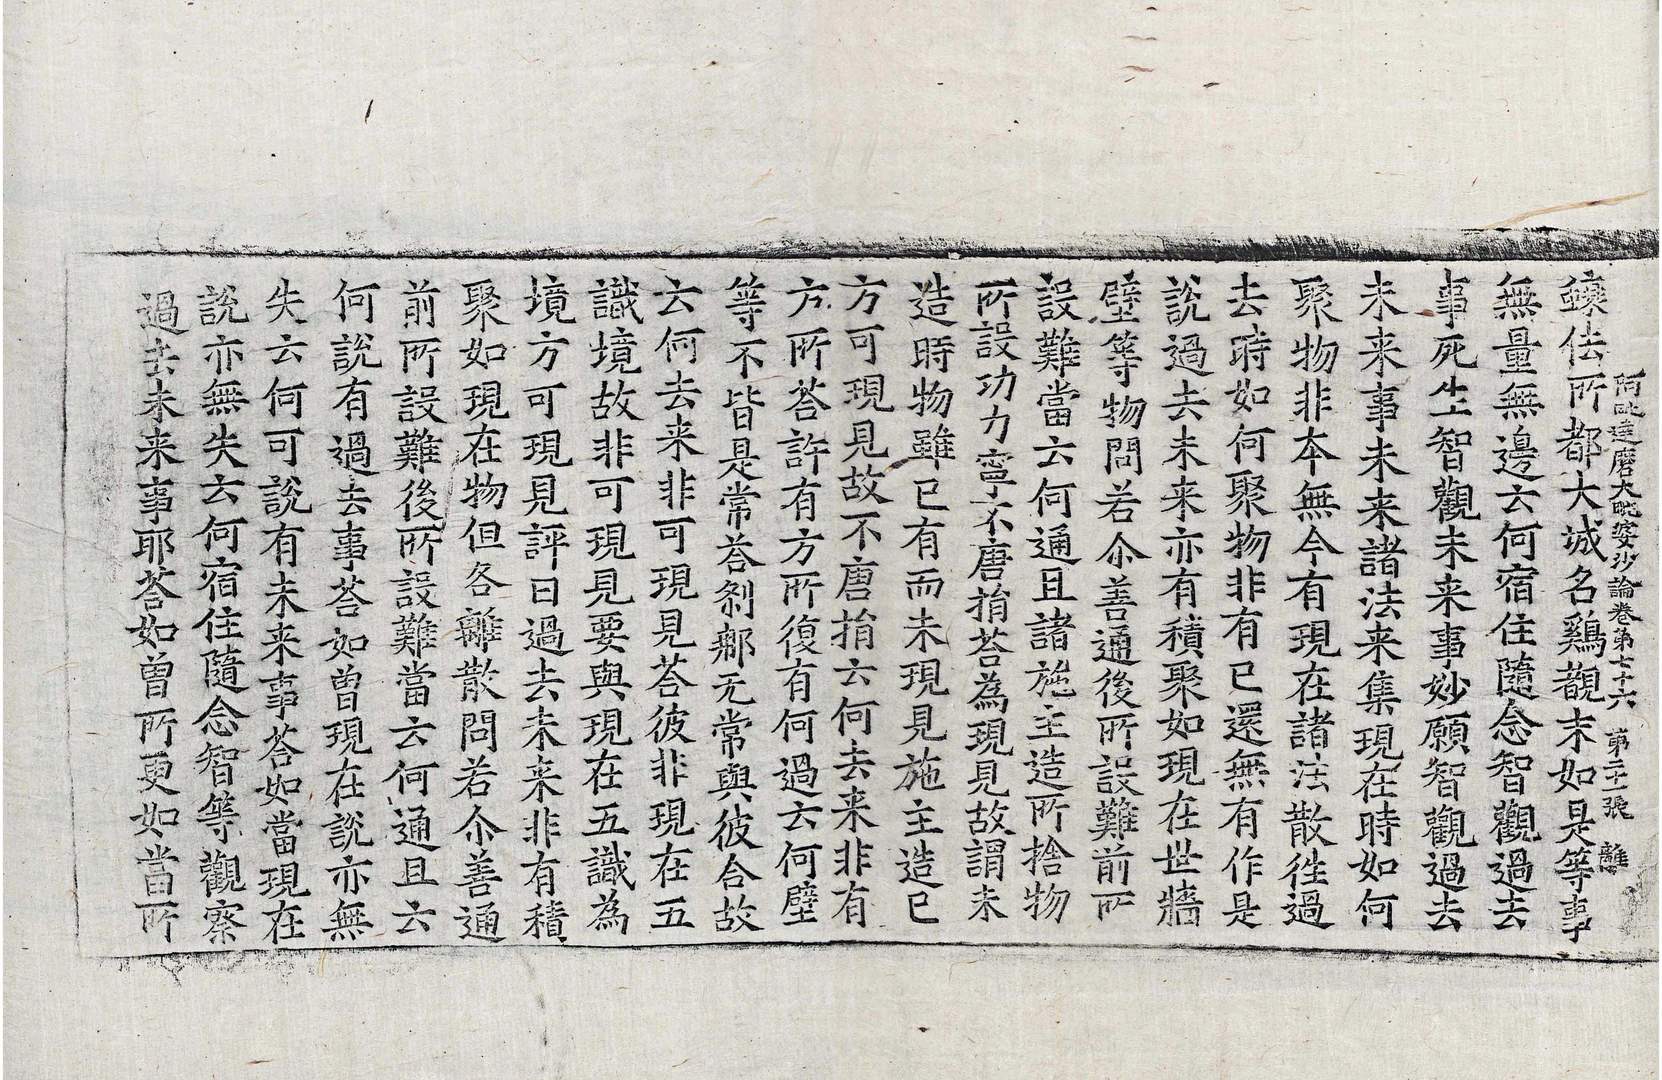 阿毗達磨大毗婆沙論卷第七十六　第二十一張　離
蠰佉所都大城名鷄覩末如是等事
無量無邊云何宿住隨念智觀過去
事死生智觀未来事妙願智觀過去
未来事未来諸法来集現在時如何
聚物非本無今有現在諸法散徃過
去時如何聚物非有已還無有作是
說過去未来亦有積聚如現在世牆
壁等物問若尒善通後所設難前所
設難當云何通且諸施主造所捨物
所設功力寧不唐捐荅為現見故謂未
造時物雖已有而未現見施主造已
方可現見故不唐捐云何去来非有
方所荅許有方所復有何過云何壁
等不皆是常荅剎那无常與彼合故
云何去来非可現見荅彼非現在五
識境故非可現見要與現在五識為
境方可現見評曰過去未来非有積
聚如現在物但各離散問若尒善通
前所設難後所設難當云何通且云
何說有過去事荅如曾現在說亦無
失云何可說有未来事荅如當現在
說亦無失云何宿住隨念智等觀察
過去未来事耶荅如曾所更如當所